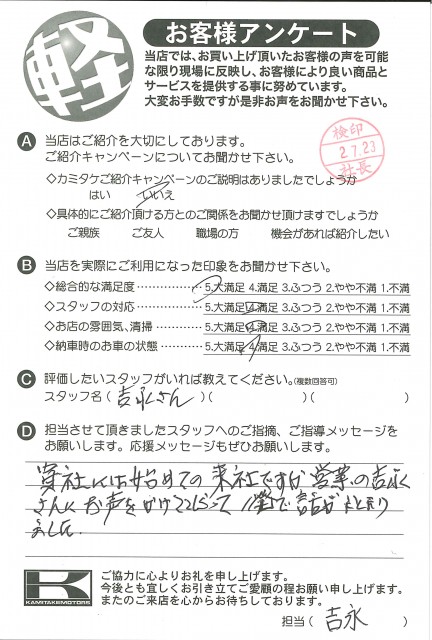 軽
お客様アンケート
当店では、お買い上げ頂いたお客様の声を可能
な限り現場に反映し、お客様により良い商品と
サービスを提供する事に努めています。
大変お手数ですが是非お声をお聞かせ下さい。
A 当店はご紹介を大切にしております。
ご紹介キャンペーンについてお聞かせ下さい。
検印
2.7.23
社長
◇カミタケご紹介キャンペーンのご説明はありましたでしょうか
はい いいえ
◇具体的にご紹介頂ける方とのご関係をお聞かせ頂けますでしょうか
ご親族 ご友人 職場の方 機会があれば紹介したい
B 当店を実際にご利用になった印象をお聞かせ下さい。
◇総合的な満足度……………5.大満足 4.満足 3.ふつう 2.やや不満 1.不満
◇スタッフの対応……………5.大満足 4.満足 3.ふつう 2.やや不満 1.不満
◇お店の雰囲気、清掃………5.大満足 4.満足 3.ふつう 2.やや不満 1.不満
◇納車時のお車の状態………5.大満足 4.満足 3.ふつう 2.やや不満 1.不満
C 評価したいスタッフがいれば教えてください。(複数回答可)
スタッフ名(吉永さん)( )( )
D 担当させて頂きましたスタッフへのご指摘、ご指導メッセージを
お願いします。応援メッセージもぜひお願いします。
貴社には始めての来社ですが営業の吉永
さんにお声をかけてもらって で話がまとまり
ました
KAMITAKEMOTORS
ご協力に心よりお礼を申し上げます。
今後とも宜しくお引き立てご愛顧の程お願い申し上げます。
またのご来店を心からお待ちしております。
担当(吉永)